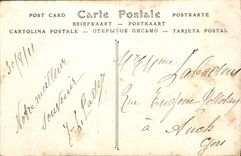 POST CARD Carte Postale POSTKARTE
BRIEFKAART — POSTKAART
CARTOLINA POSTALE — ОТКРЫТОЕ ПИСЬМО — TARJETA POSTAL
30/8/11
Notre meilleur
souvenir
Rue Eugène
à Auch
Gers